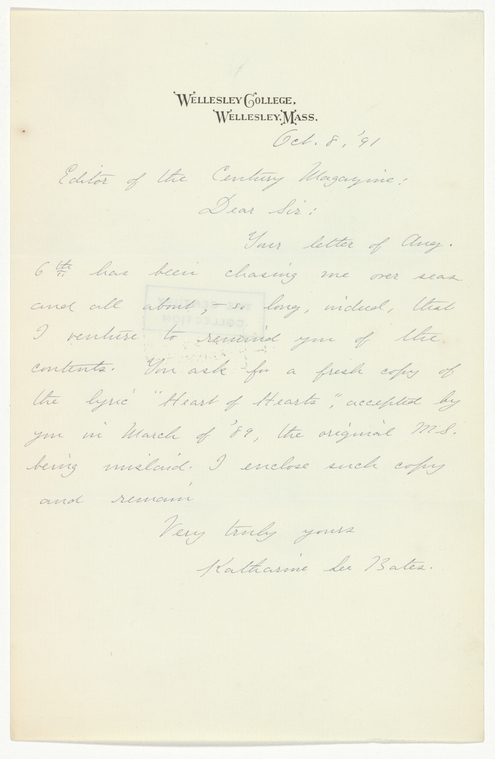 WELLESLEY COLLEGE,
WELLESLEY, MASS.
Oct. 8, '91
Editor of the Century Magazine:
Dear Sir:
Your letter of Aug.
6th has been chasing me over seas
and all about, – so long, indeed, that
I venture to remind you of the
contents. You ask for a fresh copy of
the lyric "Heart of Hearts", accepted by
you in March of '89, the original M.S.
being mislaid. I enclose such copy
and remain
Very truly yours
Katharine Lee Bates.